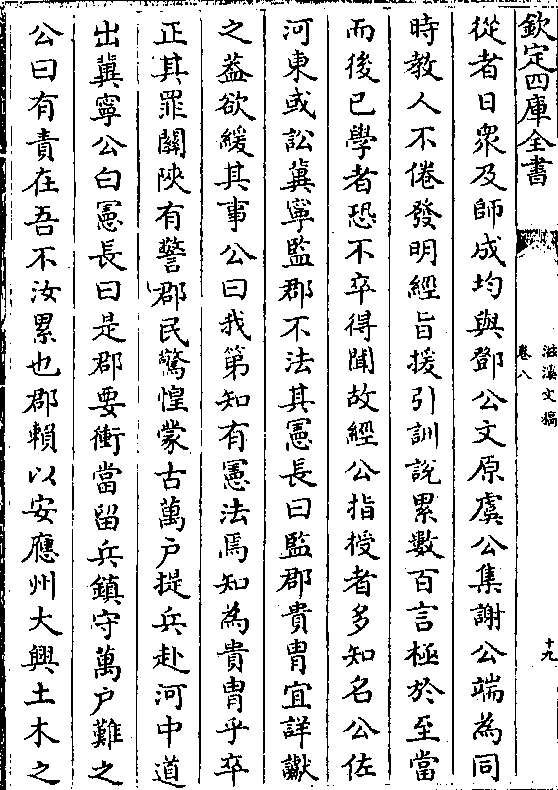 欽定四庫全書
滋溪文稿
卷八
十九
從者日衆及師成均與鄧公文原虞公集謝公端為同
時教人不倦發明經旨援引訓說累數百言極於至當
而後已學者恐不卒得聞故經公指授者多知名公佐
河東或訟冀寧監郡不法其憲長曰監郡貴胄宜詳讞
之葢欲緩其事公曰我第知有憲法焉知為貴胄乎卒
正其罪關陜有警郡民驚惶蒙古萬户提兵赴河中道
出冀寧公白憲長曰是郡要衝當留兵鎮守萬户難之
公曰有責在吾不汝累也郡賴以安應州大興土木之